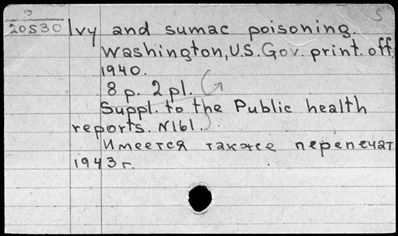 20530
5
Ivy and sumac poisoning.
Washington, U.S. Gov. print. off.
1940.
8 p. 2 pl.
Suppl. to the Public health
reports. N161.
Имеется также перепечат.
1943 г.